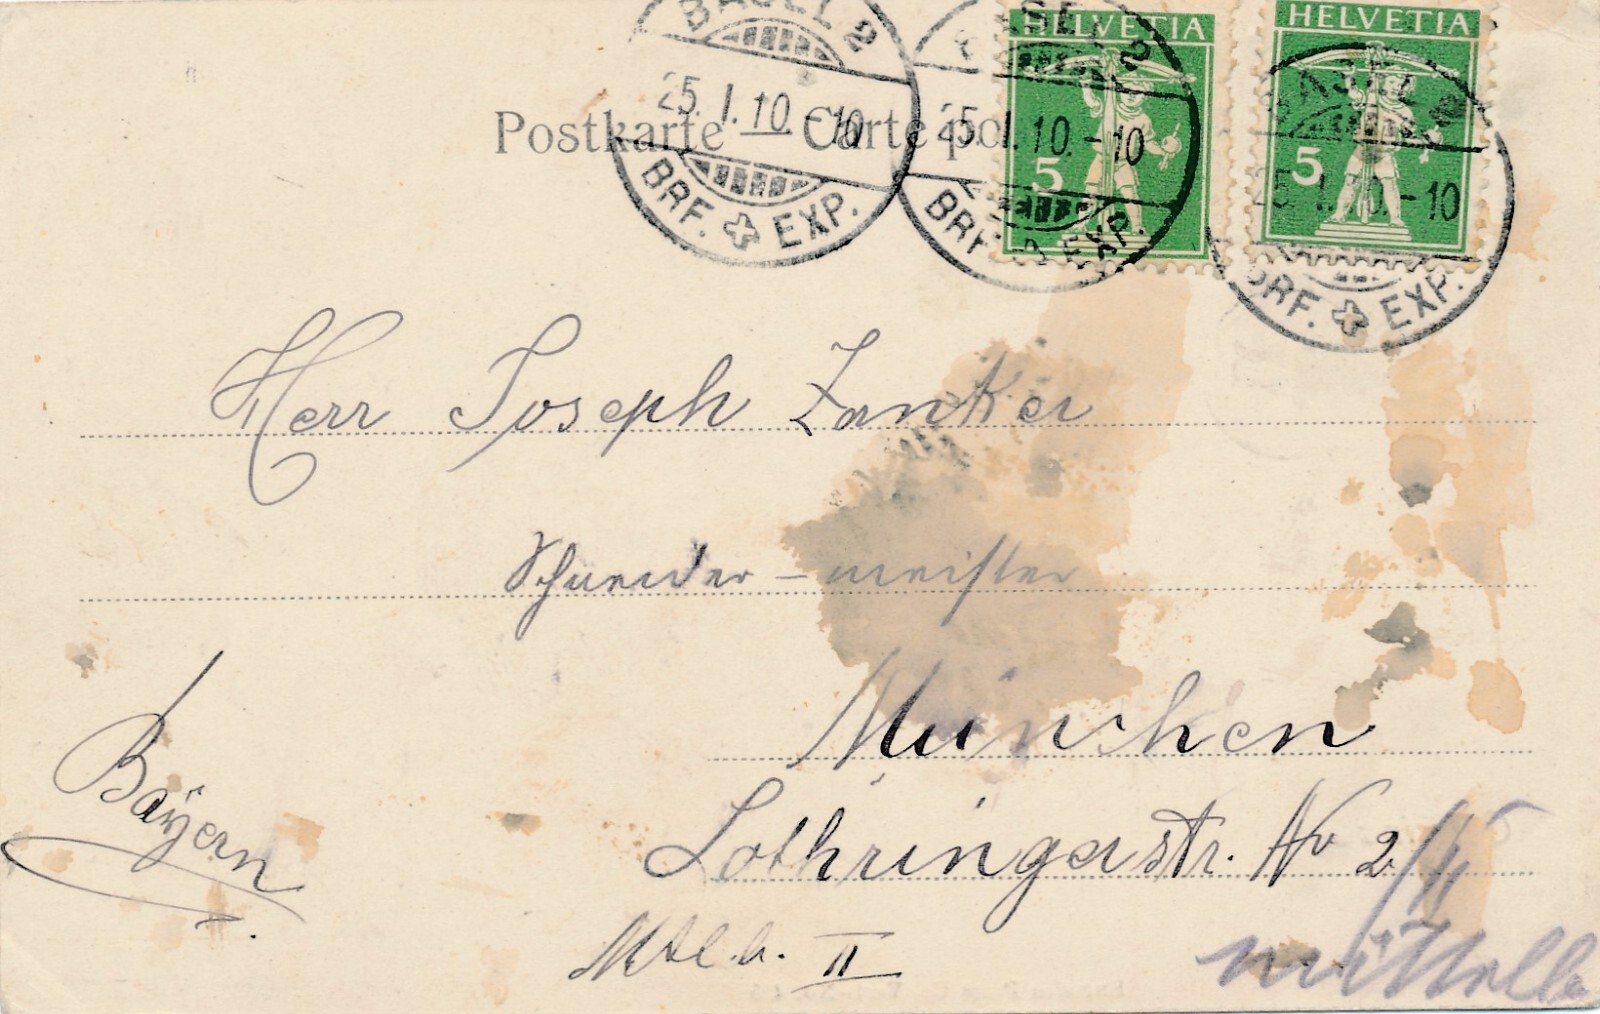 HELVETIA
HELVETIA
BASEL 2
25.I.10.-10
BRF. EXP.
BASEL 2
25.I.10.-10
BRF. EXP.
BASEL 2
25.I.10.-10
BRF. EXP.
5
5
Postkarte Carte po
Herr Joseph Zanker
Schneider-meister
München
Bayern
Lothringerstr. No 2/II
II